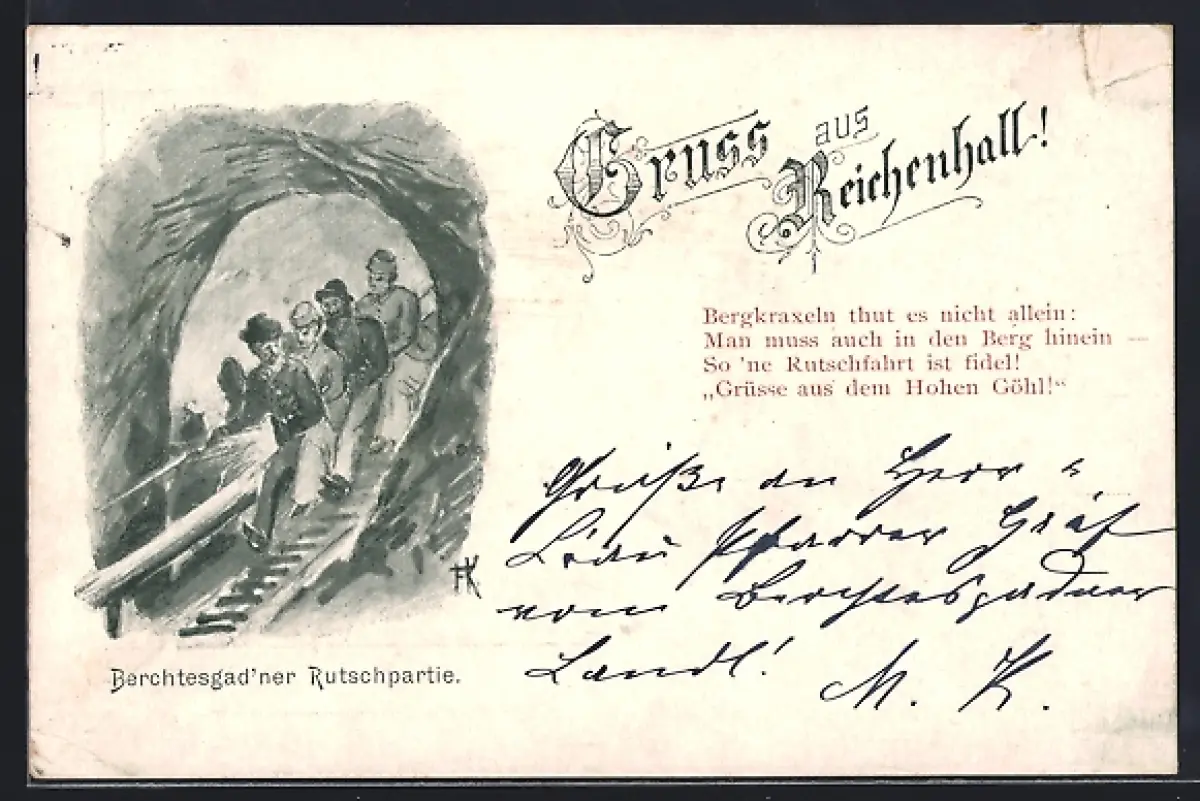 Gruss aus Reichenhall!
Bergkraxeln thut es nicht allein:
Man muss auch in den Berg hinein —
So 'ne Rutschfahrt ist fidel!
„Grüsse aus dem Hohen Göhl!“
Grüße an Herr
Frau Pfarrer Gräf
vom Berchtesgadner
Landl!
M. K.
FK
Berchtesgad'ner Rutschpartie.